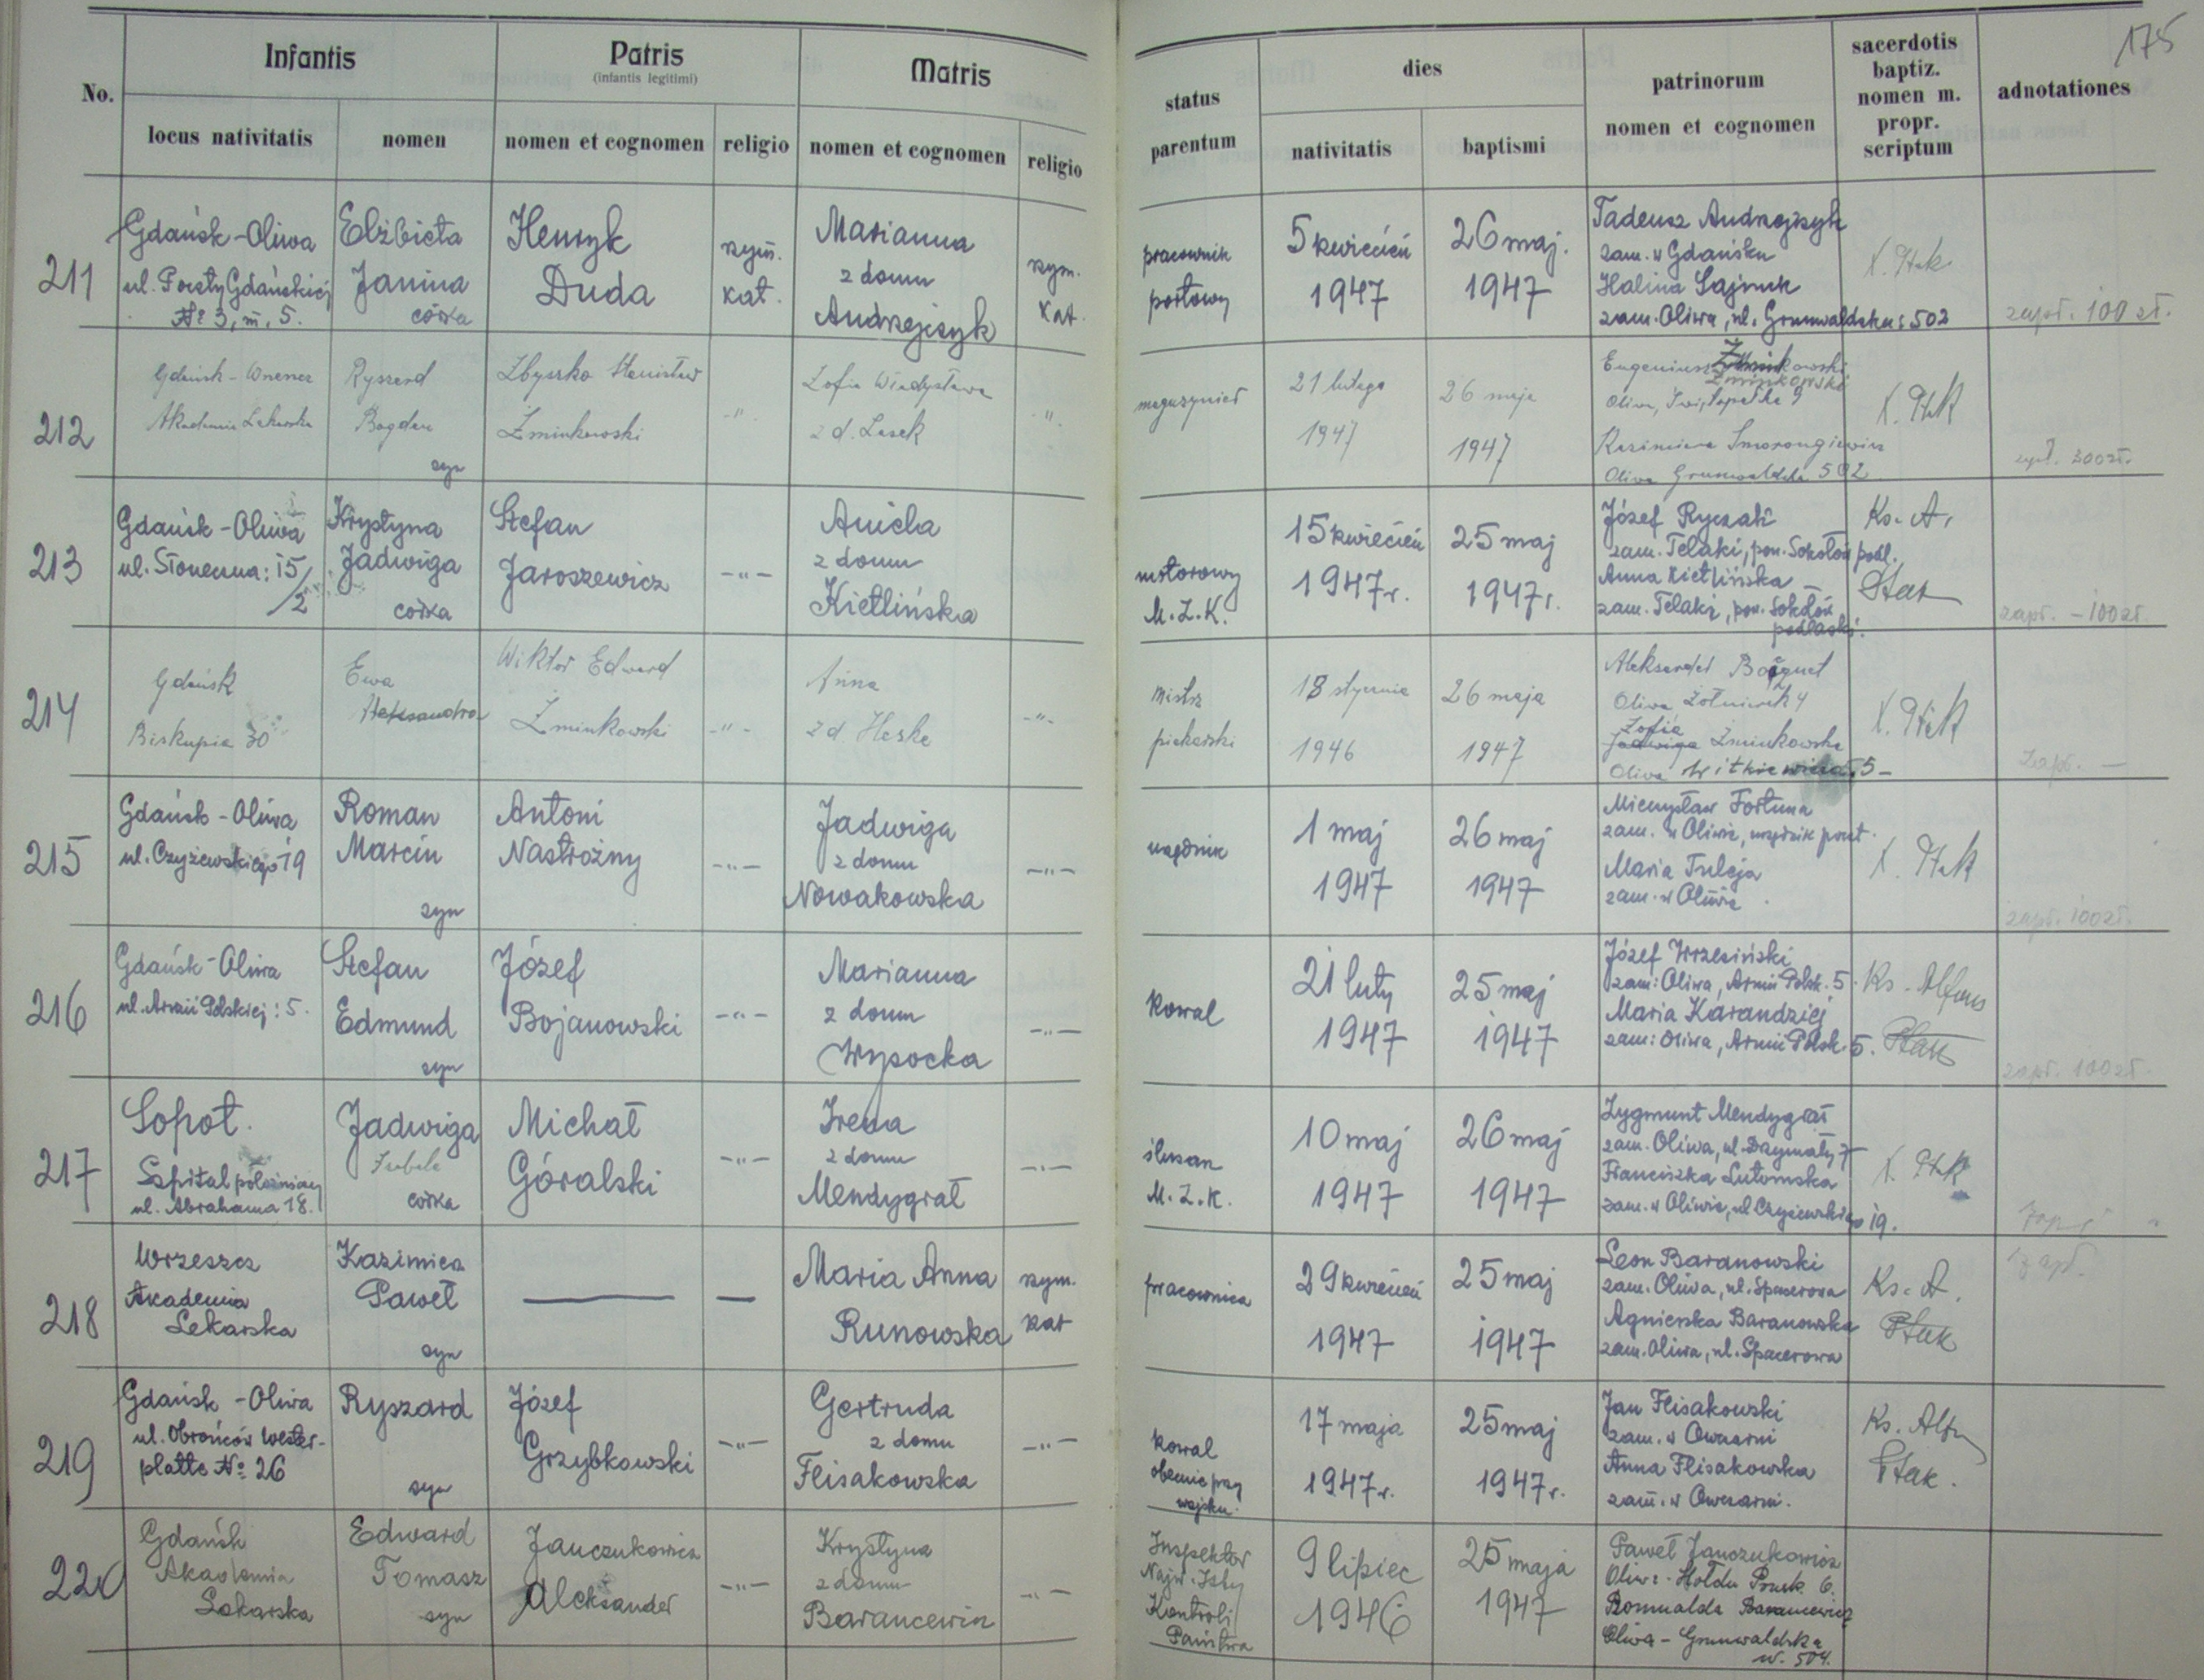 175
No.
Infantis
Patris
(infantis legitimi)
Matris
status parentum
dies
patrinorum
nomen et cognomen
sacerdotis
baptiz.
nomen m.
propr.
scriptum
adnotationes
locus nativitatis
nomen
nomen et cognomen
religio
nomen et cognomen
religio
nativitatis
baptismi
211
Gdańsk-Oliwa
ul. Poczty Gdańskiej
№ 3, m. 5.
Elżbieta
Janina
córka
Henryk
Duda
rzym.
kat.
Marianna
z domu
Andrzejczyk
rzym.
kat.
pracownik
portowy
5 kwiecień
1947
26 maj.
1947
Tadeusz Andrzejczyk
zam. w Gdańsku
Halina Sajnuk
zam. Oliwa, ul. Grunwaldzka: 502
X. Ptak
zapł. 100 zł.
212
Akademia Lekarska
Ryszard
Bogdan
syn
Zbyszko Stanisław
Żminkowski
-"-
Zofia Władysława
z d. Lasek
-"-
magazynier
21 lutego
1947
26 maja
1947
Eugeniusz
Żminkowski
Oliwa, Świętopełka 9
Kazimiera
Oliwa Grunwaldzka 502
X. Ptak
zapł. 300 zł.
213
Gdańsk-Oliwa
ul. Słoneczna: 15/2
Krystyna
Jadwiga
córka
Stefan
Jaroszewicz
-"-
Aniela
z domu
Kietlińska
motorowy
M.Z.K.
15 kwiecień
1947 r.
25 maj
1947 r.
Józef Ryczak
zam. Telaki, pow. Sokołów podl.
Anna Kietlińska
zam. Telaki, pow. Sokołów
podlaski.
Ks. A.
Ptak
zapł. - 100 zł.
214
Gdańsk
Biskupia 30
Ewa
Aleksandra
Wiktor Edward
Żminkowski
-"-
Anna
z d. Heske
-"-
mistrz
piekarski
18 stycznia
1946
26 maja
1947
Aleksander
Oliwa
Zofia
Jadwiga Żminkowska
Oliwa Witkiewicza 5 -
X. Ptak
Zapł. -
215
Gdańsk-Oliwa
ul. Czyżewskiego 19
Roman
Marcin
syn
Antoni
Nastrożny
-"-
Jadwiga
z domu
Nowakowska
-"-
urzędnik
1 maj
1947
26 maj
1947
Mieczysław Fortuna
zam. w Oliwie, urzędnik poczt.
Maria Tuleja
zam. w Oliwie
X. Ptak
zapł. 100 zł.
216
Gdańsk-Oliwa
ul. Armii Polskiej: 5.
Stefan
Edmund
syn
Józef
Bojanowski
-"-
Marianna
z domu
Wysocka
-"-
kowal
21 luty
1947
25 maj
1947
Józef Wrzesiński
zam: Oliwa, Armii Polsk. 5.
Maria Karandziej
zam: Oliwa, Armii Polsk. 5.
Ks. Alfons
Ptak
zapł. 100 zł.
217
Sopot.
Szpital położniczy
ul. Abrahama 18.
Jadwiga
Izabela
córka
Michał
Góralski
-"-
Irena
z domu
Mendygrał
-"-
ślusarz
M.Z.K.
10 maj
1947
26 maj
1947
Zygmunt Mendygrał
zam. Oliwa, ul. Drzymały 7
Franciszka Lutomska
zam. w Oliwie, ul. Czyżewskiego 19.
X. Ptak
Zapł.
218
Wrzeszcz
Akademia
Lekarska
Kazimierz
Paweł
syn
—
—
Maria Anna
Runowska
rzym.
kat
pracownica
29 kwiecień
1947
25 maj
1947
Leon Baranowski
zam. Oliwa, ul. Spacerowa
Agnieszka Baranowska
zam. Oliwa, ul. Spacerowa
Ks. A.
Ptak
Zapł.
219
Gdańsk-Oliwa
ul. Obrońców Wester-
platte № 26
Ryszard
syn
Józef
Grzybkowski
-"-
Gertruda
z domu
Flisakowska
-"-
kowal
obecnie przy
wojsku.
17 maja
1947 r.
25 maj
1947 r.
Jan Flisakowski
zam. w Owczarni
Anna Flisakowska
zam. w Owczarni.
Ks. Alfons
Ptak.
220
Gdańsk
Akademia
Lekarska
Edward
Tomasz
syn
Janczukowicz
Aleksander
-"-
Krystyna
z domu
Barancewicz
-"-
Inspektor
Najw. Izby
Kontroli
Państwa
9 lipiec
1946
25 maja
1947
Paweł Janczukowicz
Oliwa - Hołdu Prusk. 6.
Romualda Barancewicz
Oliwa - Grunwaldzka
nr. 504.